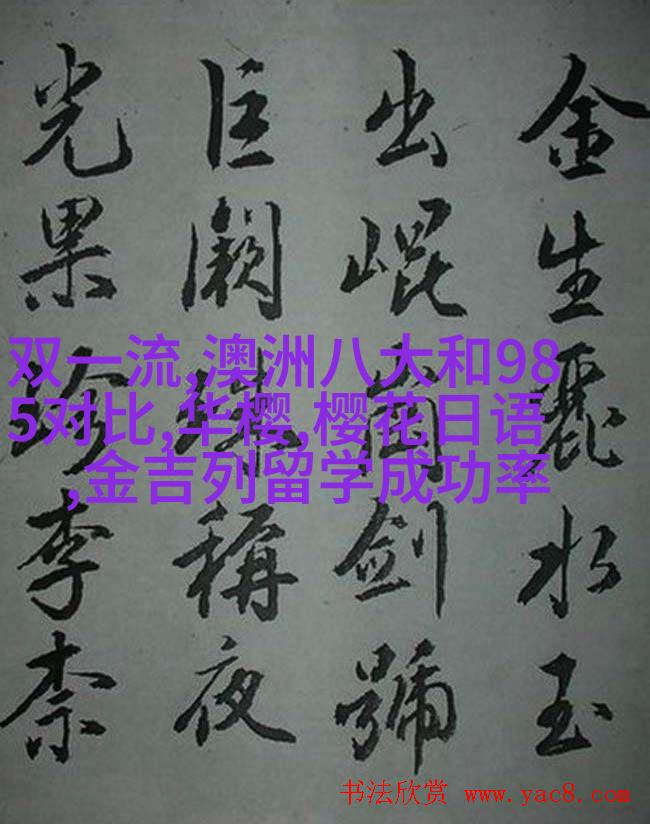 金生麗水玉
出崐岡劍號
巨闕珠稱夜
光果珍李柰
双一流,澳洲八大和98
5对比,华樱,樱花日语
,金吉列留学成功率
书法欣赏 www.yac8.com